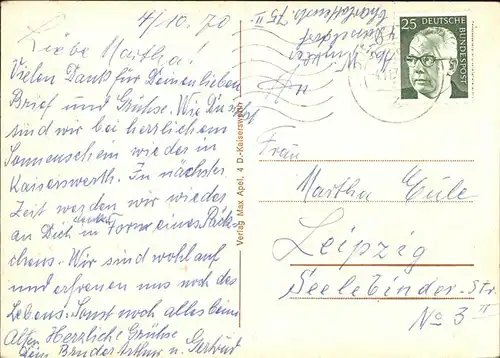 4/10.70
Liebe Martha!
Vielen Dank für Deinen lieben
Brief und Grüße. Wie Du siehst
sind wir bei herrlichem
Sonnenschein wieder in
Kaiserswerth. In nächster
Zeit werden wir wieder
an Dich denken in Form eines Päck-
chens. Wir sind wohlauf
und erfreuen uns noch des
Lebens. Sonst noch alles beim
Alten. Herzliche Grüße
Dein Bruder Arthur u. Gertrud
Verlag Max Apel, 4 D.-Kaiserswerth
4 Düsseldorf
75 II
25 DEUTSCHE
BUNDESPOST
Frau
Martha Eule
Leipzig
Seelebinder-Str
No 3 II